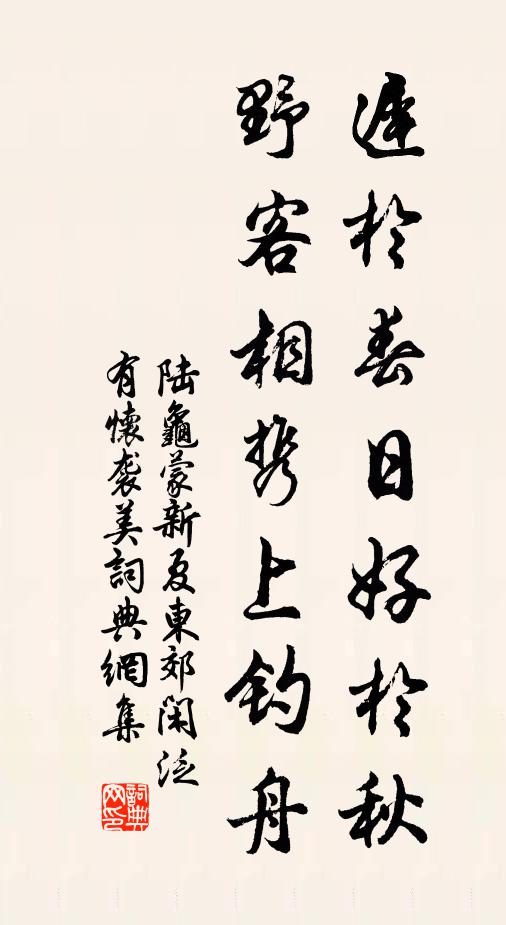 遲於春日好於秋
野客相携上钓舟
陆龜蒙新夏東郊闲泛
有懷袭美詞典網集
詞典网印